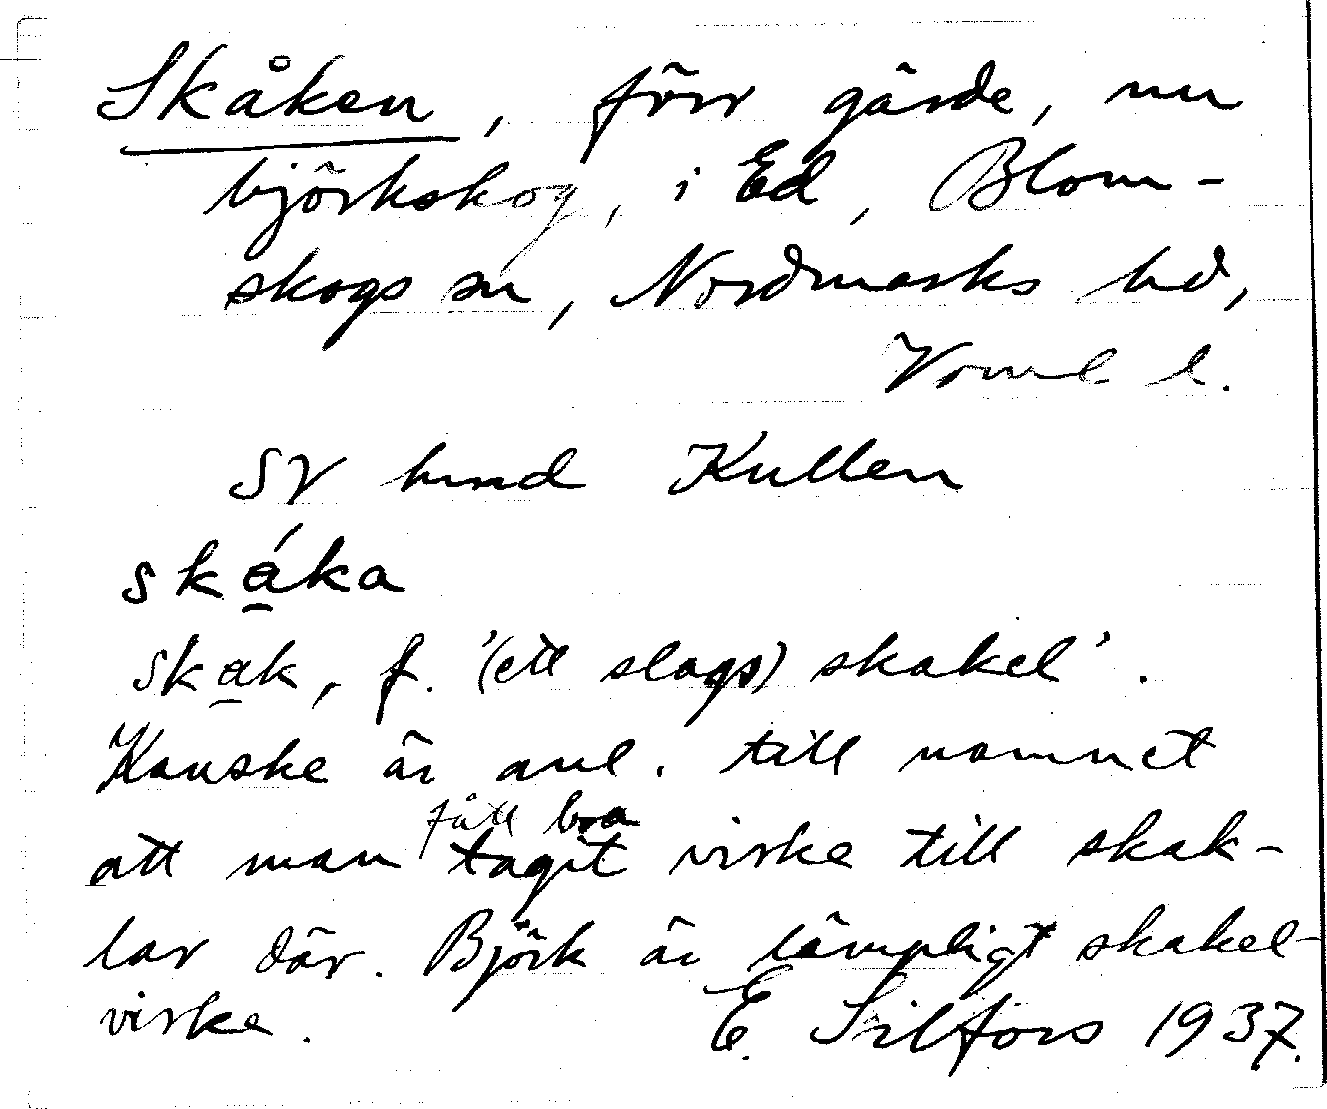 Skåken, förr gärde, nu
björkskog, i Ed, Blom-
skogs sn, Nordmarks hd,
Vrml l.
SV hund Kullen
skáka
skak, f. '(ett slags) skakel'.
Kanske är anl. till namnet
fått bra
att man tagit virke till skak-
lar där. Björk är lämpligt skakel-
virke. E. Silfors 1937.